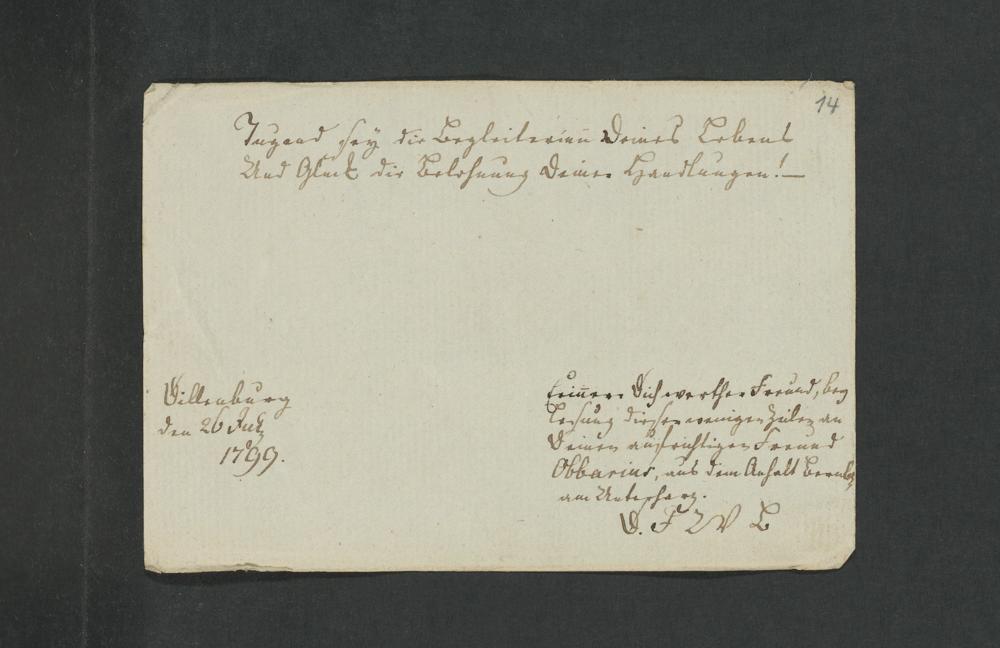 14
Tugend sey die Begleiterinn Deines Lebens
Und Glück die Belohnung Deiner Handlungen! —
Dillenburg
den 26 July
1799.
Erinnere Dich werther Freund, bey
Lesung dieser wenigen Zeilen an
Deinen aufrichtigen Freund
Obbarius, aus dem Anhalt Bernb.
am Unterharz.
D. F W B